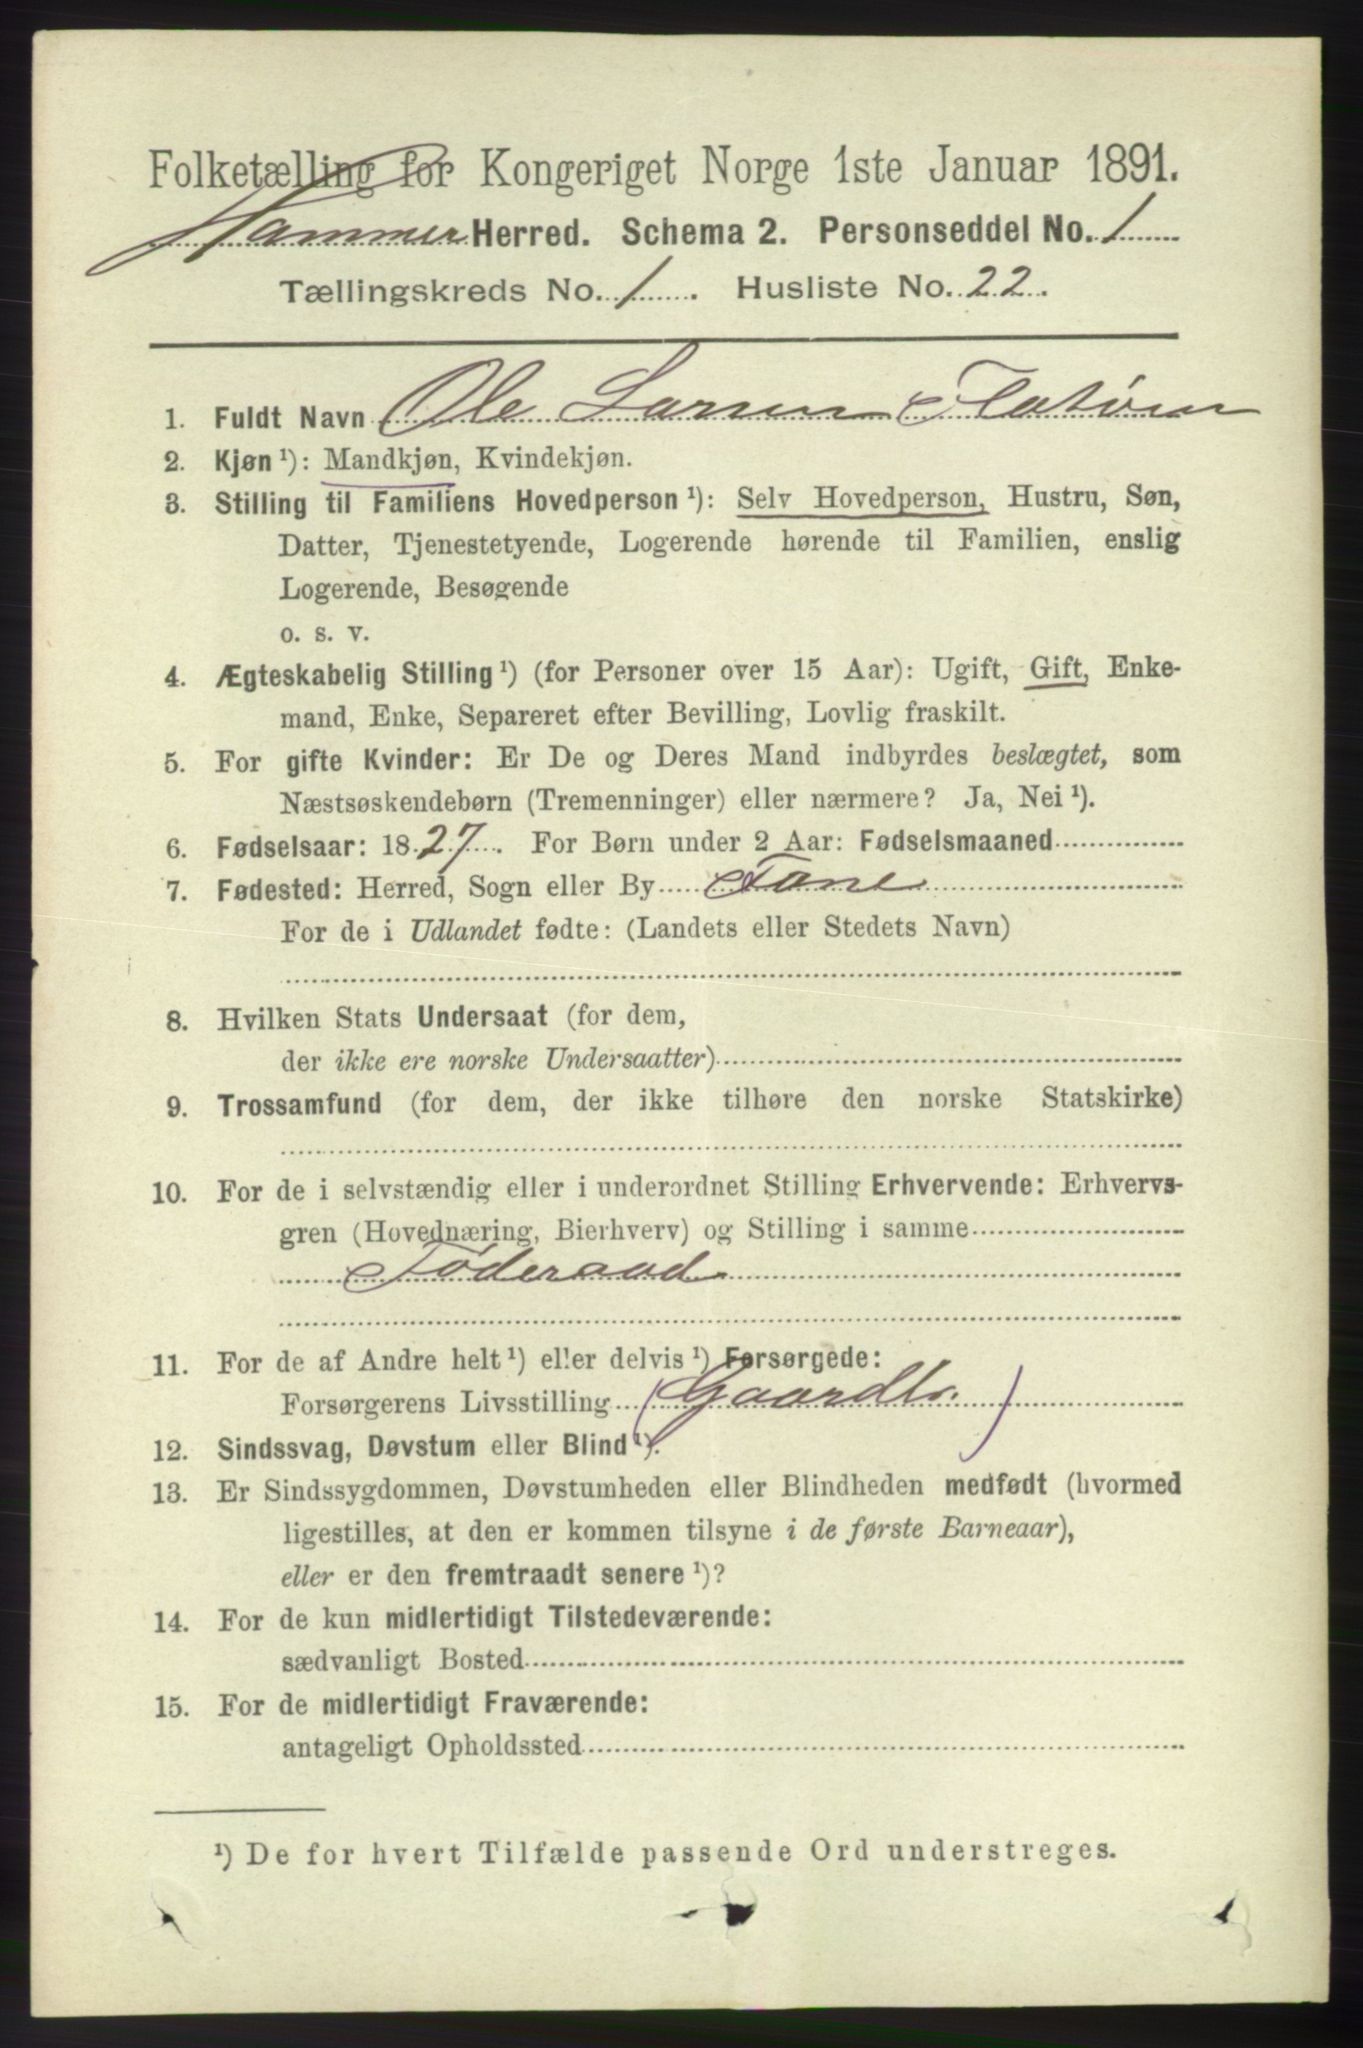 Folketælling for Kongeriget Norge 1ste Januar 1891.
Hammer Herred. Schema 2. Personseddel No. 1
Tællingskreds No. 1. Husliste No. 22.
1. Fuldt Navn Ole Larsen Flatøen
2. Kjøn ¹): Mandkjøn, Kvindekjøn.
3. Stilling til Familiens Hovedperson ¹): Selv Hovedperson, Hustru, Søn,
Datter, Tjenestetyende, Logerende hørende til Familien, enslig
Logerende, Besøgende
o. s. v.
4. Ægteskabelig Stilling ¹) (for Personer over 15 Aar): Ugift, Gift, Enke-
mand, Enke, Separeret efter Bevilling, Lovlig fraskilt.
5. For gifte Kvinder: Er De og Deres Mand indbyrdes beslægtet, som
Næstsøskendebørn (Tremenninger) eller nærmere? Ja, Nei ¹).
6. Fødselsaar: 1827. For Børn under 2 Aar: Fødselsmaaned
7. Fødested: Herred, Sogn eller By Fane
For de i Udlandet fødte: (Landets eller Stedets Navn)
8. Hvilken Stats Undersaat (for dem,
der ikke ere norske Undersaatter)
9. Trossamfund (for dem, der ikke tilhøre den norske Statskirke)
10. For de i selvstændig eller i underordnet Stilling Erhvervende: Erhvervs-
gren (Hovednæring, Bierhverv) og Stilling i samme
Føderaad
11. For de af Andre helt ¹) eller delvis ¹) Forsørgede:
Forsørgerens Livsstilling (Gaardbr.)
12. Sindssvag, Døvstum eller Blind ¹).
13. Er Sindssygdommen, Døvstumheden eller Blindheden medfødt (hvormed
ligestilles, at den er kommen tilsyne i de første Barneaar),
eller er den fremtraadt senere ¹)?
14. For de kun midlertidigt Tilstedeværende:
sædvanligt Bosted
15. For de midlertidigt Fraværende:
antageligt Opholdssted
¹) De for hvert Tilfælde passende Ord understreges.